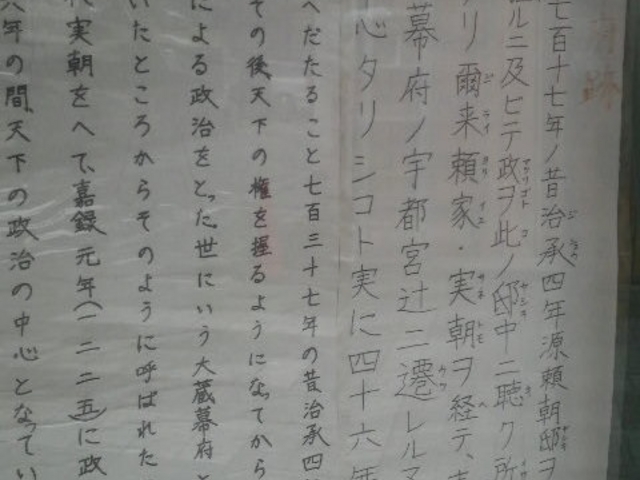 府跡
七百十七年ノ昔治承四年源頼朝邸ヲ
ルニ及ビテ政ヲ此ノ邸中ニ聴ク所
リ爾来頼家・実朝ヲ経テ、
幕府ノ宇都宮辻ニ遷レルマ
心タリシコト実に四十六年
へだたること七百三十七年の昔治承四
その後天下の権を握るようになってから
による政治をとった世にいう大蔵幕府と
いたところからそのように呼ばれた
実朝をへて、嘉録元年(一二二五)に政
六年の間、天下の政治の中心となってい